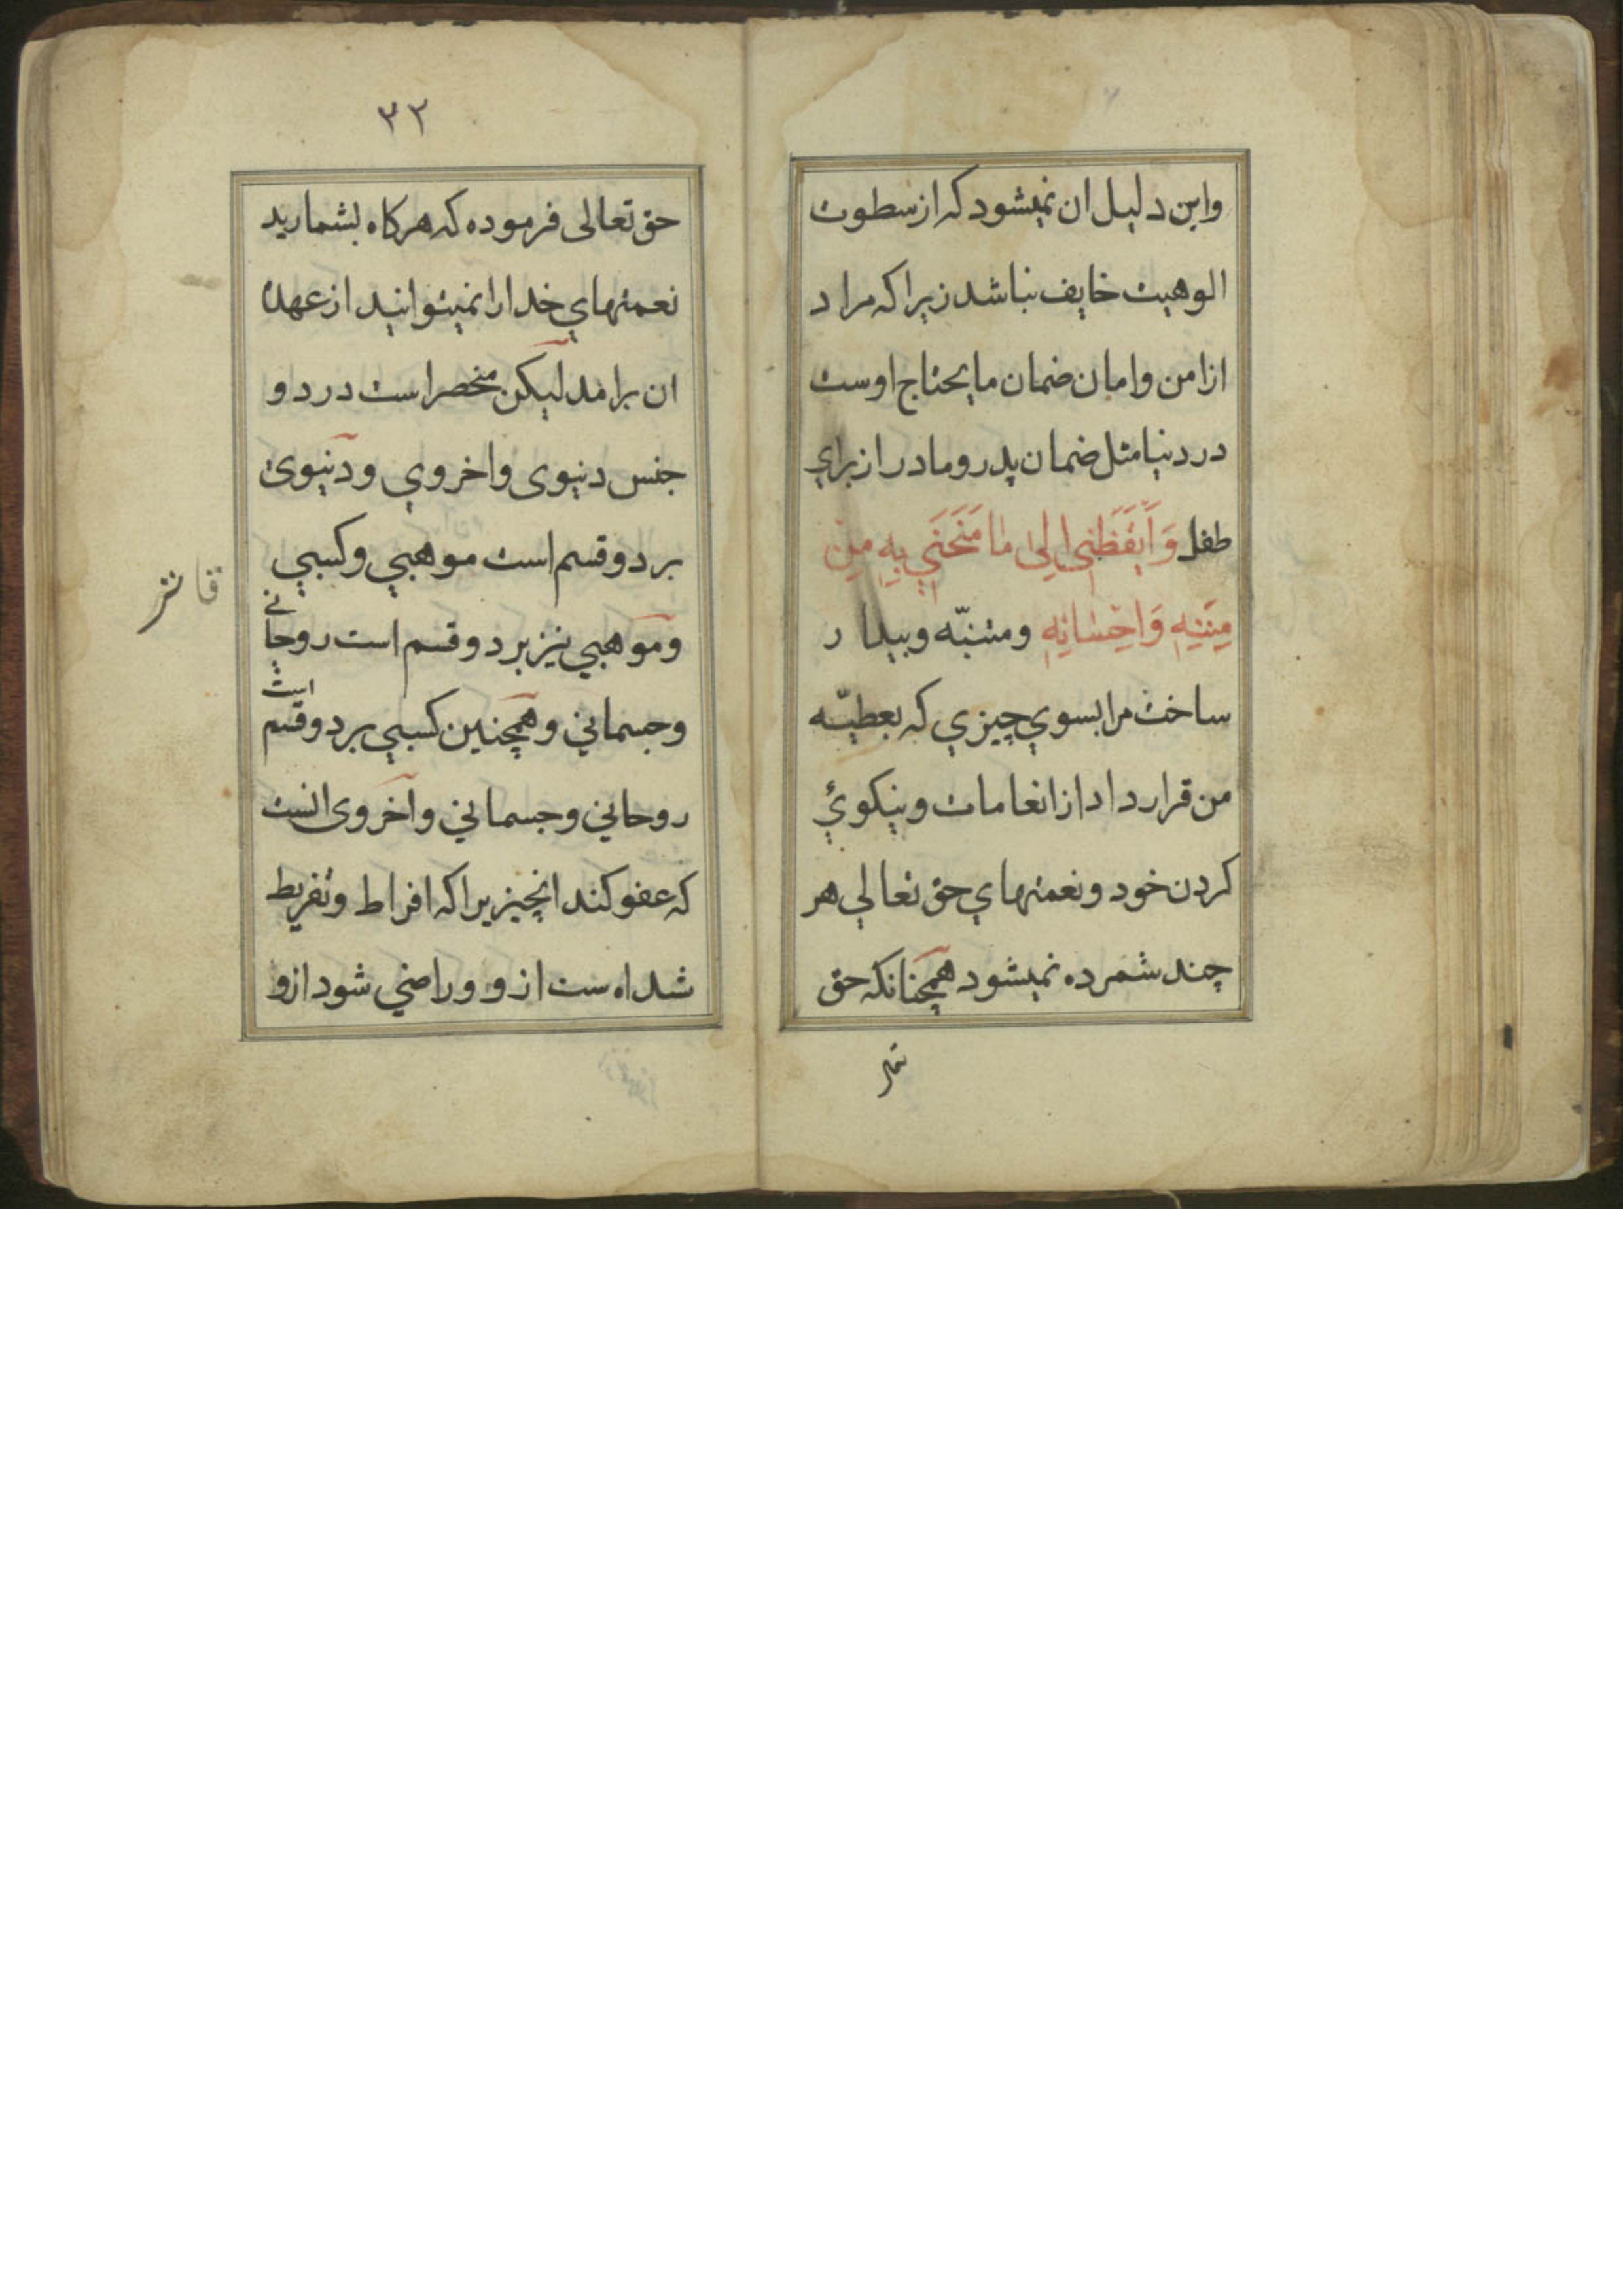 واین دلیل ان نمیشود که از سطوت
الوهیت خایف نباشد زیرا که مراد
از امن و امان ضمان مایحتاج اوست
در دنیا مثل ضمان پدر و مادر از برای
طفل وَاَیْقَظَنی اِلی ما مَنَحَنی بِهِ مِنْ
مِنَنِهِ وَاِحْسانِهِ ومتنبّه وبیدار
ساخت مرا بسوی چیزی که بعطیّه
من قرار داد از انعامات و نیکوئی
کردن خود و نعمتهای حق تعالی هر
چند شمرده نمیشود همچنانکه حق
٣٢
حق تعالی فرموده که هرکاه بشمارید
نعمتهای خدا را نمیتوانید از عهدهٔ
ان برامد لیکن منحصر است در دو
جنس دنیوی واخروی ودنیوی
بر دو قسم است موهبی وکسبی
وموهبی نیز بر دو قسم است روحانی
وجسمانی وهمچنین کسبی بر دو قسم است
روحانی وجسمانی واخروی انست
که عفو کند انچیزیرا که افراط وتفریط
شداه ست ازو وراضی شود ازو